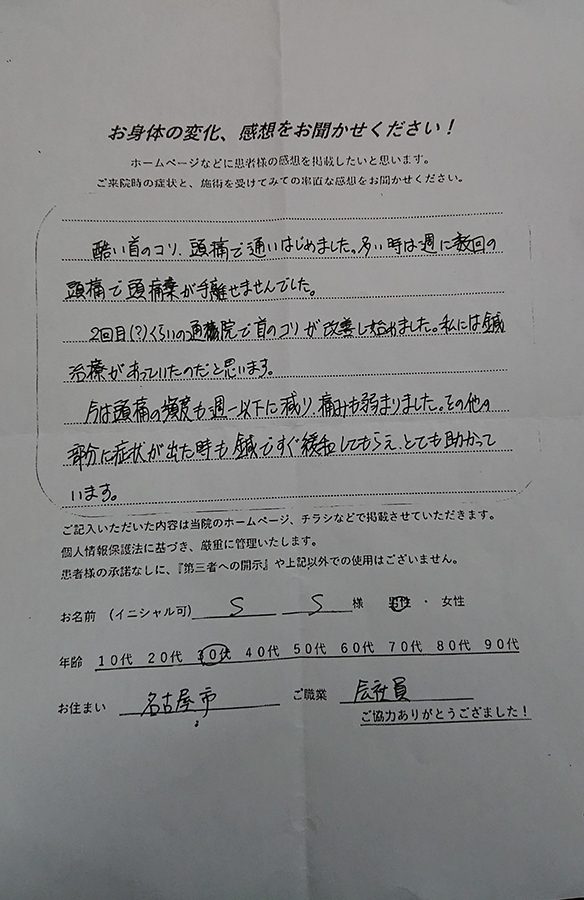 お身体の変化、感想をお聞かせください！
ホームページなどに患者様の感想を掲載したいと思います。
ご来院時の症状と、施術を受けてみての率直な感想をお聞かせください。
酷い首のコリ、頭痛で通いはじめました。多い時は週に数回の
頭痛で頭痛薬が手離せませんでした。
2回目(?)くらいの通院で首のコリが改善し始めました。私には鍼
治療があっていたのだと思います。
今は頭痛の頻度も週一以下に減り、痛みも弱まりました。その他の
部分に症状が出た時も鍼ですぐ緩和してもらえ、とても助かって
います。
ご記入いただいた内容は当院のホームページ、チラシなどで掲載させていただきます。
個人情報保護法に基づき、厳重に管理いたします。
患者様の承諾なしに、『第三者への開示』や上記以外での使用はございません。
お名前 (イニシャル可) S S 様 男性 ・ 女性
年齢 10代 20代 30代 40代 50代 60代 70代 80代 90代
お住まい 名古屋市 ご職業 会社員
ご協力ありがとうござました！